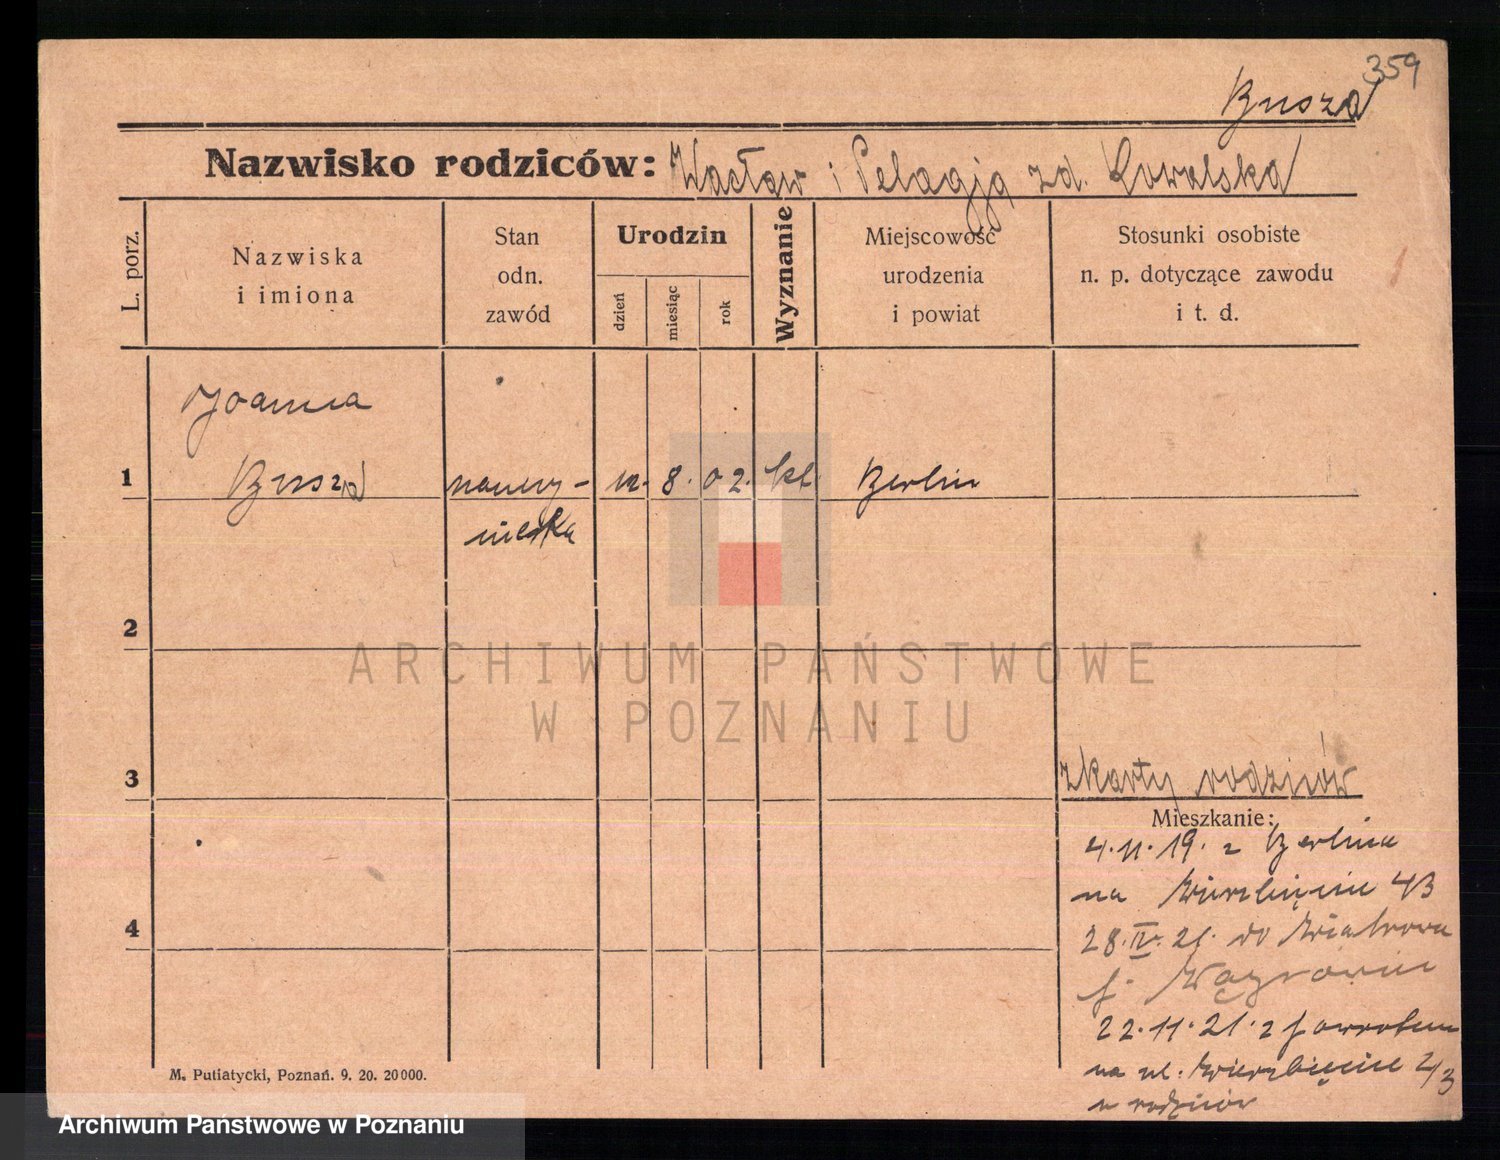 359
Busza
Nazwisko rodziców: Wacław i Pelagją zd. Kowalska
L. porz.
Nazwiska
i imiona
Stan
odn.
zawód
Urodzin
dzień
miesiąc
rok
Wyznanie
Miejscowość
urodzenia
i powiat
Stosunki osobiste
n. p. dotyczące zawodu
i t. d.
Joanna
1 Busza nauczy- 8. 02. kt. Berlin
cielka
2
ARCHIWUM PAŃSTWOWE
W POZNANIU
3
z karty rodziców
Mieszkanie:
4.11.19. z Berlina
na Wierzbięcice
4
28.IV.21. do Wiatrowa
p. Wągrowiec
22.11.21. z powrotem
na ul. Wierzbięcice
u rodziców
M. Putiatycki, Poznań. 9. 20. 20000.
Archiwum Państwowe w Poznaniu